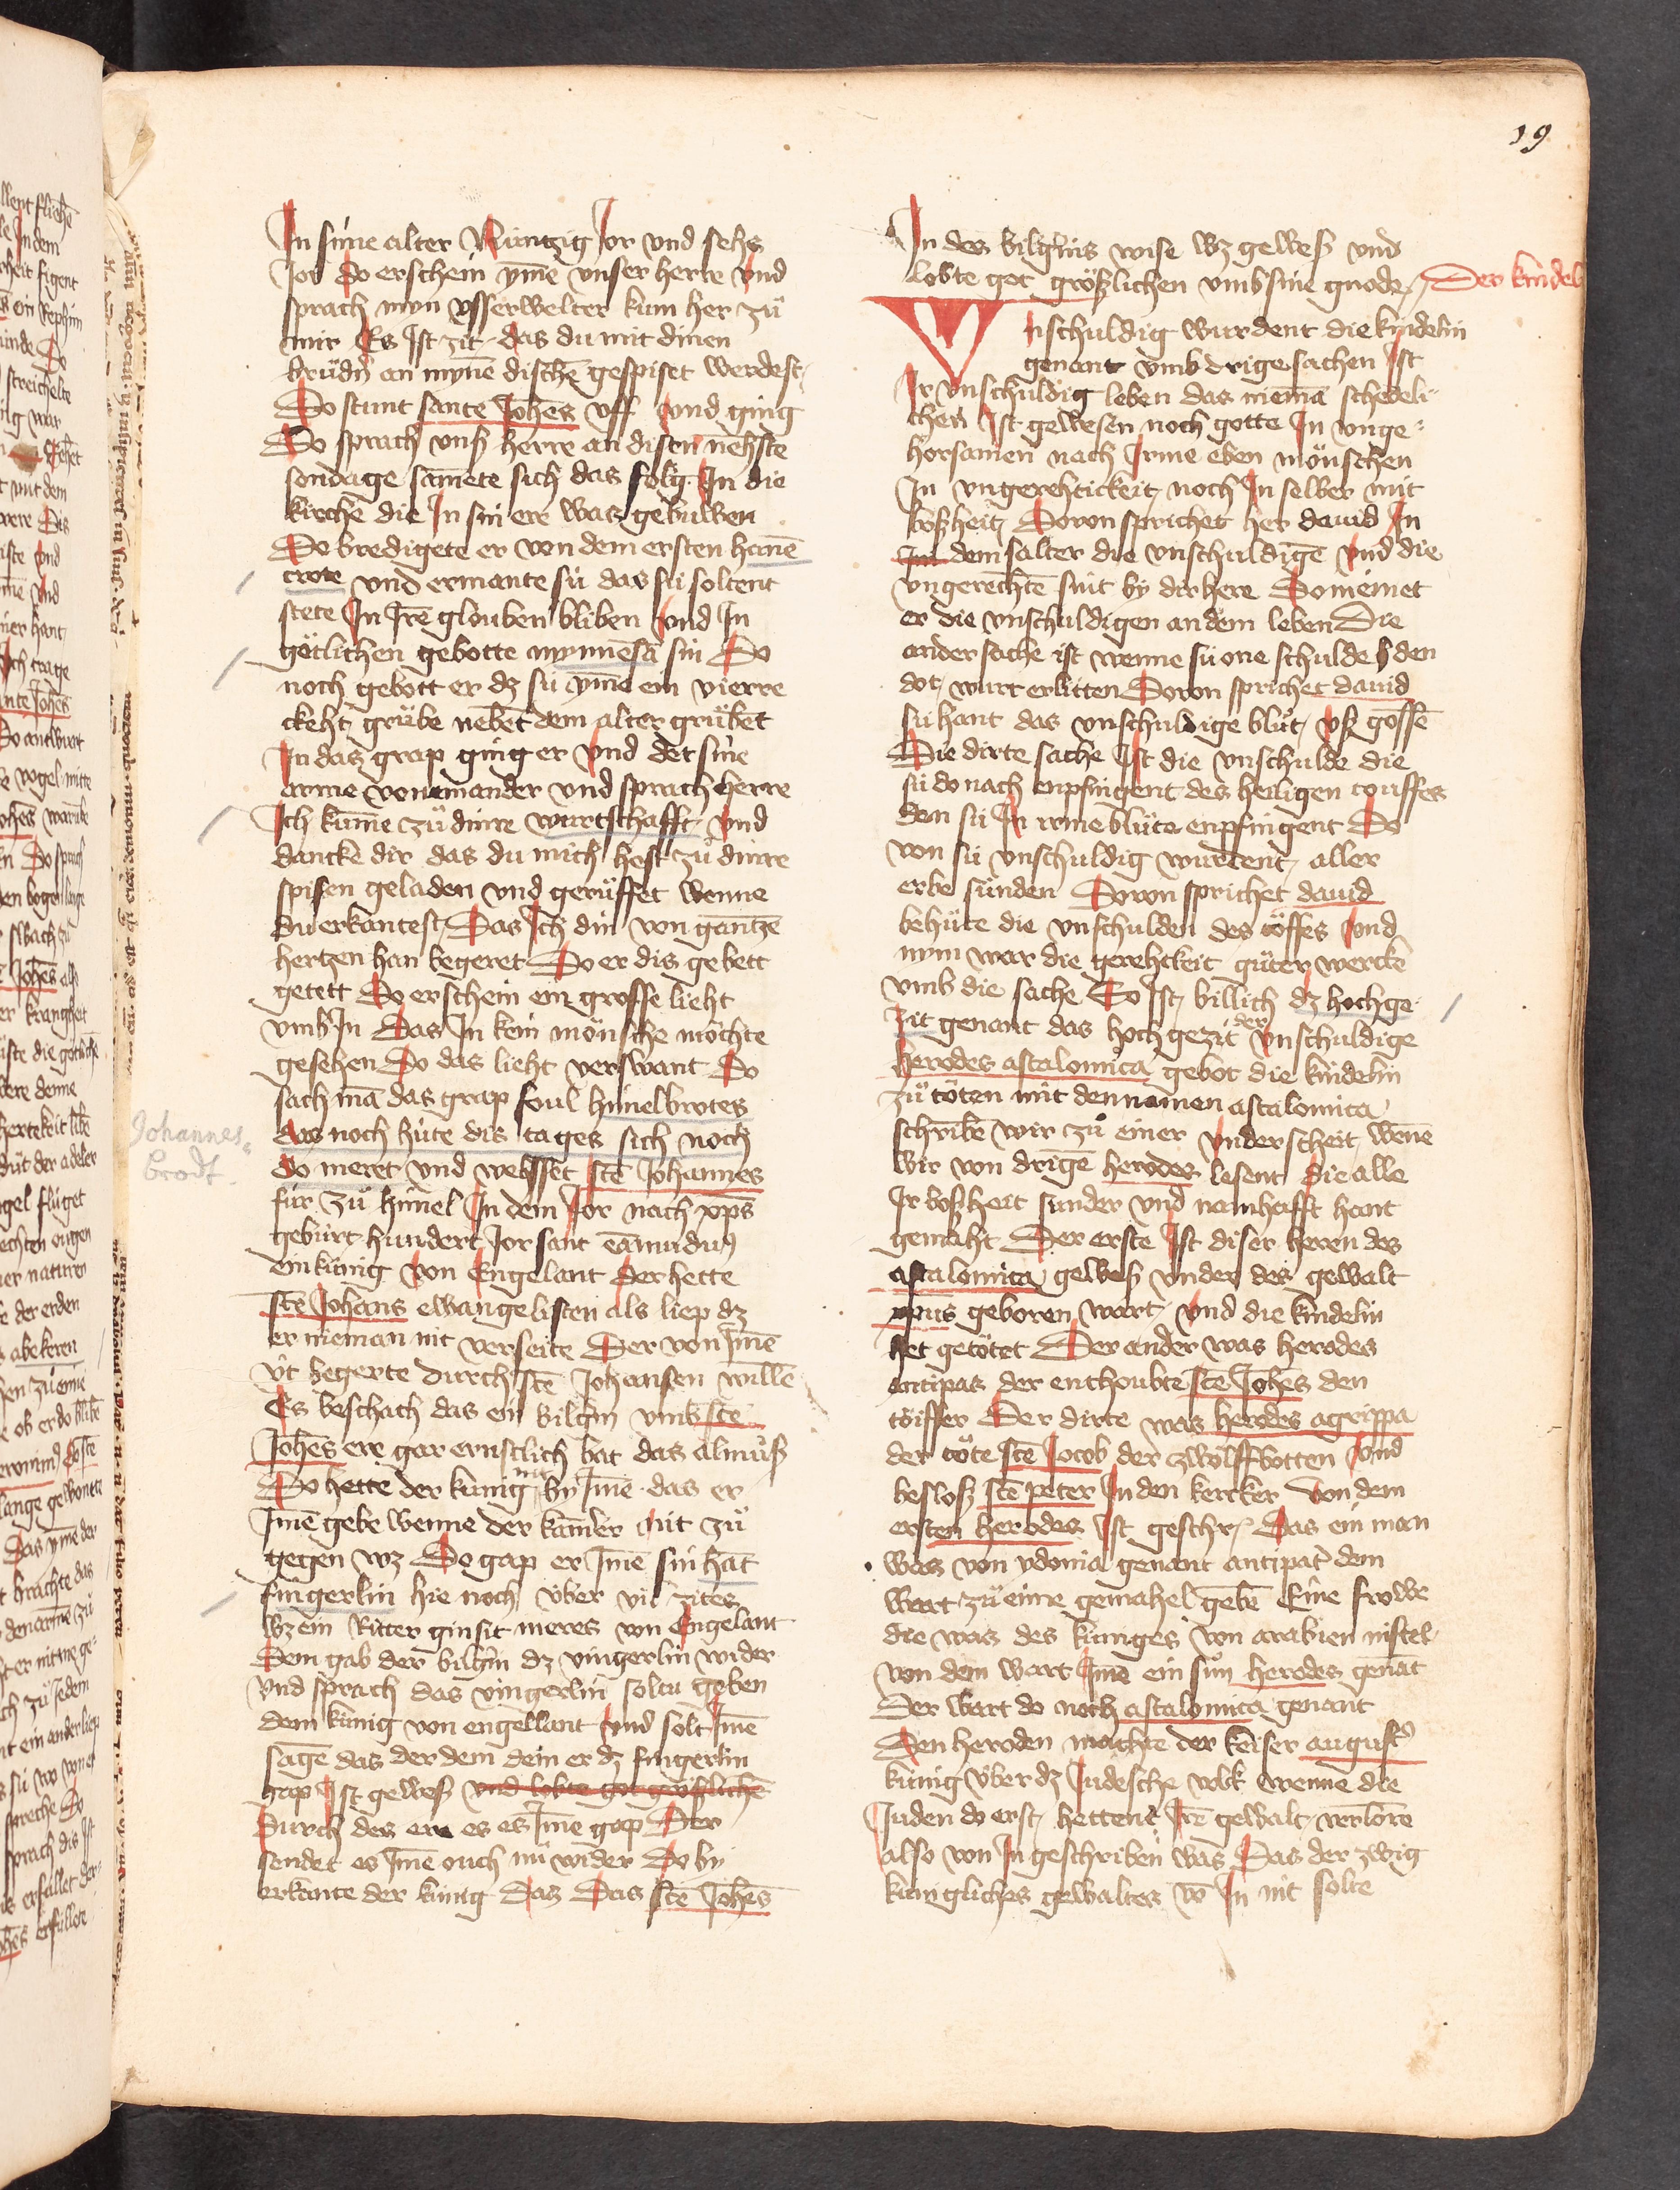 19
In sime alter Nüntzig Jor vnd sehs
Jor do erschein ymē vnser herre vnd
sprach myn vsserwelter kum her zů
mir Es Ist zit das du mit dinen
brüdn̄ an mynē dischē gespiset werdest
Do stunt sante Johēs vff vnd ging
Do sprach vnß herre an disen nēhste
sondage sam̄ete sich das folg In die
kirche die In sin ere waz gebuwen
Do bredigete er von dem ersten hanē
crote vnd ermante sü das sü soltent
stete In Irē glouben bliben vnd In
götlichen gebotte mynnesā sin Do
noch gebott er dz sü ymē ein vierre
ckeht grůbe nebēt dem alter grůbēt
In das grap ging er vnd det sine
arme von einander vnd sprach herre
Ich kūme zů dinre wurtschafft vnd
dancke dir das du mich hest zů dinre
spisen geladen vnd gerüffet wenne
du erkantest Das Ich din von gantzē
hertzen han begeret Do er dis gebett
getett Do erschein ein grosse lieht
vmb In Das In kein mönsche möchte
gesehen Do das lieht verswant Do
sach mā das grap foul himelbrotes
das noch hüte dis tages sich noch
do meret vnd wehsset stē Johannes
für zů himel In dem Jor nach xp̄s
gebürt hundert Jor sant eamudus
ein künig von Engelant der hette
stē Johans ewangelisten als liep dz
er nieman nit verseite Der von Imē
üt begerte durch stē Johansen willē
Es beschach das ein bilgin vmb stē
Johēs ere gar ernstlich bat das almůß
Do hette der künig nit by Imē das er
Imē gebe wenne der kam̄er nit zů
gegen wz Do gap er Imē sin hāt
fingerlin hie noch über vil zites
wz ein Ritter ginsit meres von Engelant
Dem gab der bilgin dz vingerlin wider
vnd sprach das vingerlin soltu geben
dem künig von engellant vnd solt Imē
sagē das der dem dem er dz fingerlin
gap Ist geweß vnd lobte got grösslichē
Durch des ere es es Imē gap Der
sendet es Imē ouch nů wider Do by
erkante der künig Das Das stē Johēs
Johannes-
brodt.
In des bilgins wise wz geweß vnd
lobte got größlichen vmb sine gnode
Der kindel
Vnschuldig wurdent die kindelin
genant vmb drige sachen Ist
Ir vnschuldig leben das niemā schedeli-
chen Ist gewesen noch gotte In vnge-
horsamen nach Irme eben mönschen
In vngerehtickeit noch In selber mit
boßheit Dovon sprichet her dauid In
dem salter die vnschuldigē vnd die
vngerechtē sint by dir here Do niemet
er die vnschuldigen an dem leben Die
ander sache ist wenne sü one schulde den
dot wurt erlitten Dovon sprichet dauid
sü hant das vnschuldige blůt vß gossē
Die dirte sache Ist die vnschulde die
sü do nach enpfingent des heiligen touffes
den sü In irme blüte enpfingent Do
von sü vnschuldig wurdent aller
erbe sünden Dovon sprichet dauid
behüte die vnschulden des töffes vnd
nym war die gerehtkeit güter wercke
vmb die sache So Ist billich dz hochge
zit genant das hoch gezit der vnschuldige
herodes ascalonita gebot die kindelin
zů töten mit den namen ascalonita
schribē wir zů einer vnderscheit wēnē
wir von drigē herodes lesent die alle
Ir boßheit sunder vnd namhafft hant
gemaht Der erste Ist diser heren des
ascalonita geweß vnder des gewalt
xpūs geboren wart vnd die kindelin
het getötet Der ander was herodes
antipas der enthoubte stē Johēs den
töiffer Der dirte was herodes agrippa
der töte stē Jocob der zwölffbotten vnd
besloß stē peter In den kercker von dem
ersten herodes Ist geschr Das ein man
was von ydonia genant antipat̄ dem
wart zů eime gemahel gebē Eine frowe
die was des küniges von arabien niftel
von dem wart Imē ein sůn herodes genāt
Der wart do noch ascalonita genant
Den heroden machte der keiser august9
künig über dz Judesche volk wenne die
Juden do erst hettent Irē gewalt verlorē
also von In geschriben was Das der zwig
küniglichs gewaltes vō In nit solte